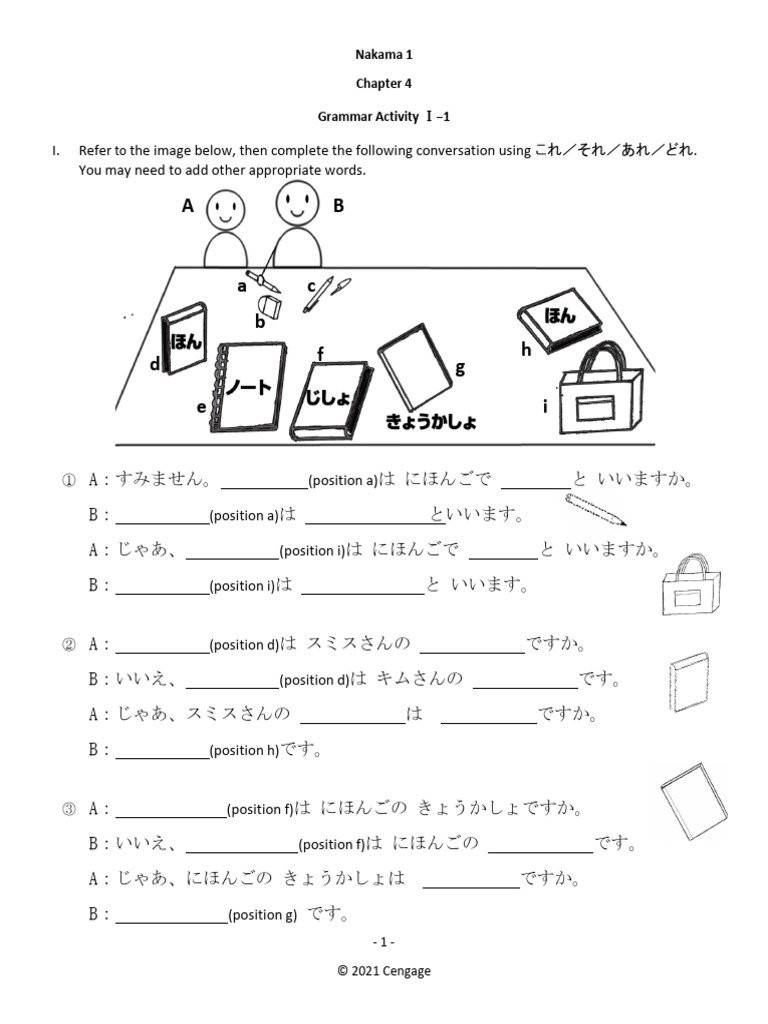 Nakama 1
Chapter 4
Grammar Activity Ⅰ–1
I. Refer to the image below, then complete the following conversation using これ／それ／あれ／どれ.
You may need to add other appropriate words.
A B
a c
b
ほん
d
ほん
h
f
g
ノート
e
じしょ
きょうかしょ
i
① A：すみません。__________(position a)は にほんごで ________と いいますか。
B：___________(position a)は ______________といいます。
A：じゃあ、___________(position i)は にほんごで ________と いいますか。
B：___________(position i)は ______________と いいます。
② A：___________(position d)は スミスさんの ____________ですか。
B：いいえ、___________(position d)は キムさんの ____________です。
A：じゃあ、スミスさんの ____________は ___________ですか。
B：___________(position h)です。
③ A：_____________(position f)は にほんごの きょうかしょですか。
B：いいえ、_____________(position f)は にほんごの ____________です。
A：じゃあ、にほんごの きょうかしょは ___________ですか。
B：_____________(position g) です。
- 1 -
© 2021 Cengage